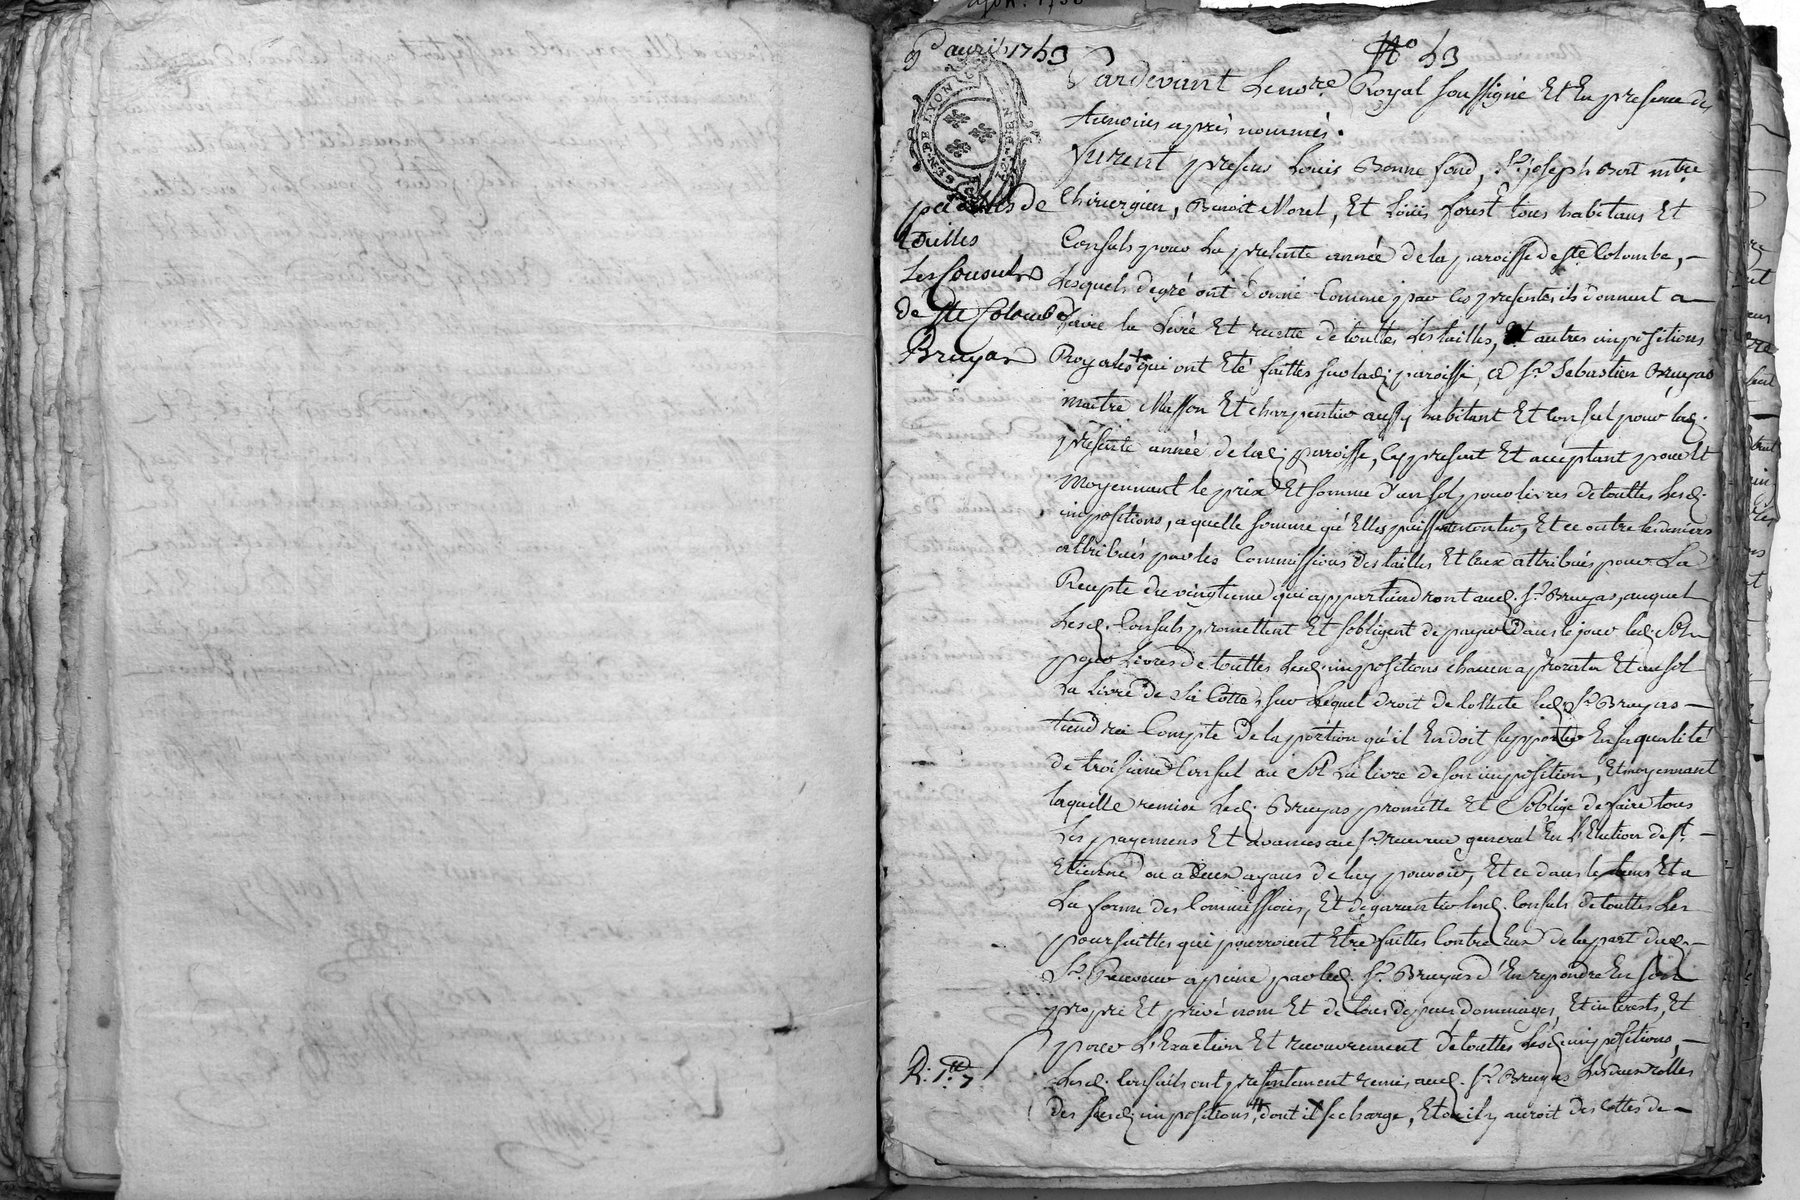 9 avril 1753
No 53
Pardevant Le no.re Royal soussigné Et En presence des
temoins après nommés.
furent presens Louis Bonnefond, Sr. joseph Bort mtre
Chirurgien, Benoit Morel, Et Loüis forest tous habitans Et
Consuls pour La presente année de la paroisse de Ste Colombe, —
Lesquels de gré ont donné Comme par Ces presentes ils donnent a
faire la Levée Et recette de touttes Les tailles, Et autres impositions
Royales qui ont Eté faittes sur lad. paroisse, a Sr. Sebastien Bruyas
maitre Masson Et charpentier aussy habitant Et Consul pour lad.
presente année de lad. paroisse, Cy present Et acceptant pour Et
moyennant le prix Et somme d'un sol pour livres de touttes Lesd.
impositions, a quelle somme qu'Elles puissent monter, Et ce outre les deniers
attribués par les Commissions des tailles Et Ceux attribués pour La
Recepte du vingtieme qui appartiendront aud. Sr. Bruyas, auquel
Lesd. Consuls promettent Et sobligent de payer dans le jour led. Sol
pour Livres de touttes Lesd. impositions chacun a prorata Et au sol
La Livre de sa Cotte, sur Lequel droit de collecte led. Sr. Bruyas —
tiendra Compte de la portion qu'il En doit supporter En sa qualité
de troisieme Consul au Sol La livre de son imposition, Et moyennant
laquelle remise Led. Bruyas promette Et Soblige de faire tous
Les payemens Et avances au Sr. receveur general En l'Election de St. —
Etienne ou a Ceux ayans de luy pouvoir, Et ce dans le tems Et a
La forme des Commissions, Et de garantir lesd. Consuls de touttes Les
poursuittes qui pourroient Etre faittes Contre Eux de la part dud. —
Sr. Receveur a peine par led. Sr. Bruyas d'En repondre En son
propre Et privé nom Et de tous depens dommages, Et interests, Et
pour L'Exaction Et recouvrement de touttes Lesd. impositions, —
Lesd. Consuls ont presentement remis aud. Sr. Bruyas Les deux rolles
des susd. impositions, dont il se charge, Et ou il y auroit des Cottes de —
GEN. DE LYON
de
tailles
Les Consuls
de Ste Colombe
Bruyas